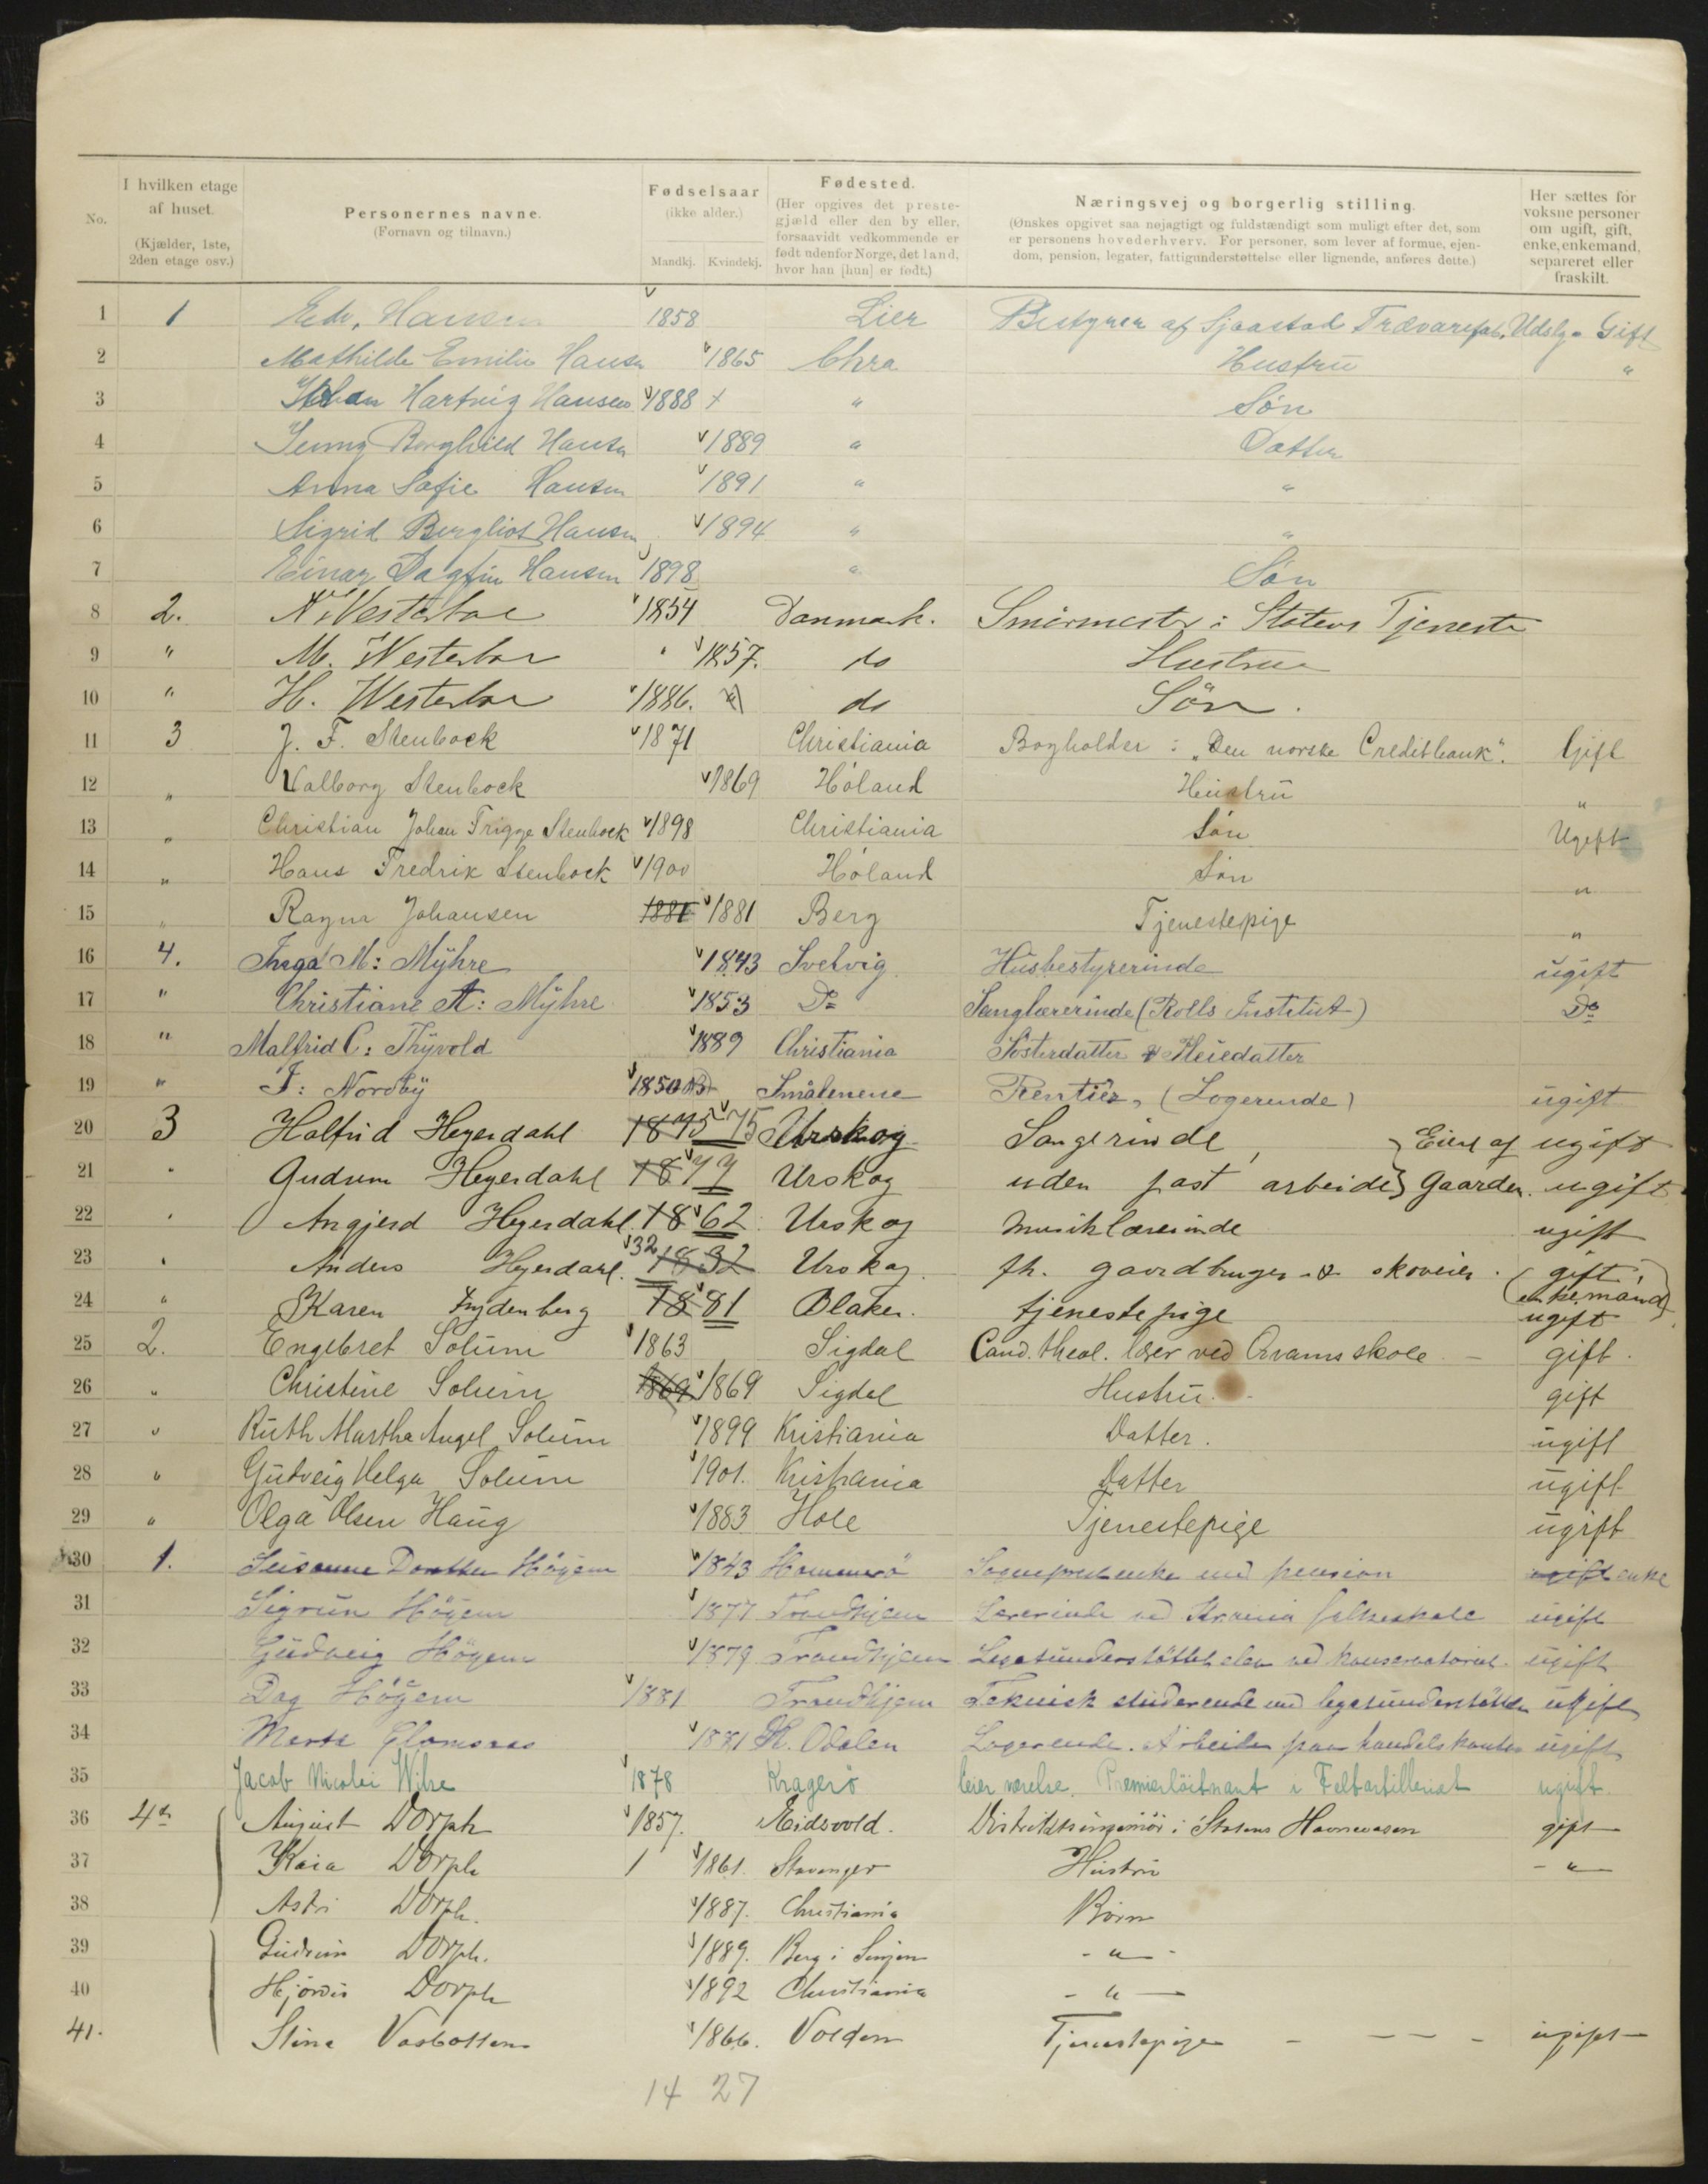 No.
I hvilken etage af huset.
(Kjælder, 1ste, 2den etage osv.)
Personernes navne.
(Fornavn og tilnavn.)
Fødselsaar
(ikke alder.)
Mandkj. Kvindekj.
Fødested.
(Her opgives det prestegjæld eller den by eller, forsaavidt vedkommende er født udenfor Norge, det land, hvor han [hun] er født.)
Næringsvej og borgerlig stilling.
(Ønskes opgivet saa nøjagtigt og fuldstændigt som muligt efter det, som er personens hovederhverv. For personer, som lever af formue, ejendom, pension, legater, fattigunderstøttelse eller lignende, anføres dette.)
Her sættes for voksne personer om ugift, gift, enke, enkemand, separeret eller fraskilt.
1 1 Edv. Hansen 1858 Lier Bestyrer af Sjaastad Trævarefab. Udslg. Gift
2 Mathilde Emilie Hansen 1865 Chra Hustru "
3 Johan Hartvig Hansen 1888 + " Søn
4 Jenny Borghild Hansen 1889 " Datter
5 Anna Sofie Hansen 1891 " "
6 Sigrid Bergliot Hansen 1894 " "
7 Einar Dagfin Hansen 1898 " Søn
8 2. N. Westerboe 1854 Danmark. Smörmester i Statens Tjeneste
9 " M. Westerboe " 1857. do Hustrue
10 " H. Westerboe 1886. do Sön.
11 3 J. F. Stenbock 1871 Christiania Bogholder i „Den norske Creditbank". Gift
12 " Valborg Stenbock 1869 Höland Hustru "
13 " Christian Johan Trigge Stenbock 1898 Christiania Sön Ugift
14 " Hans Fredrik Stenbock 1900 Höland Sön "
15 " Ragna Johansen 1881 1881 Berg Tjenestepige "
16 4. Inga M: Myhre 1843 Svelvig Husbestyrerinde ugift
17 " Christiane A: Myhre 1853 Do Sanglærerinde (Rolls Institut) Do
18 " Malfrid C: Thyvold 1889 Christiania Søsterdatter & Pleiedatter
19 " F: Nordby 1850 Smålenene Rentier, (Logerende) ugift
20 3 Halfrid Heyerdahl 1875 75 Urskog Sangerinde, } Eiere af ugift
21 " Gudrun Heyerdahl 1877 Urskog uden fast arbeide } Gaarden. ugift
22 " Angjerd Heyerdahl. 1862 Urskog Musiklærerinde ugift
23 " Anders Heyerdahl. 32 1832 Urskog. fh. gaardbruger & skoveier. gift, (enkemand)
24 " Karen Frydenberg 1881 Blaker. tjenestepige ugift
25 2. Engebret Solum 1863 Sigdal Cand. theol. lærer ved Qvams skole - gift.
26 " Christine Solum 1869 1869 Sigdal Hustru. gift
27 " Ruth Martha Angel Solum 1899 Kristiania Datter. ugift
28 " Gudveig Helga Solum 1901. Kristiania Datter ugift
29 " Olga Olsen Haug 1883 Hole Tjenestepige ugift
30 1. Susanne Dorothea Höyem 1843 Hammerö Sogneprestenke med pension ugift enke
31 Sigrun Höyem 1877 Trondhjem Lærerinde ved Kr.ania folkeskole ugift
32 Gudveig Höyem 1879 Trondhjem Legatunderstöttet elev ved konservatoriet. ugift
33 Dag Höyem 1881 Trondhjem Teknisk studerende med legatunderstöttelse ugift
34 Marta Glomsaas 1881 N. Odalen Logerende. Arbeider paa handelskontor ugift
35 Jacob Nicolai Wilse 1878 Kragerö leier værelse. Premierlöitnant i Feltartilleriet ugift.
36 4de August Dorph 1857. Eidsvold. Distriktsingeniör i Statens Havnevæsen gift
37 Kaia Dorph 1 1861. Stavanger Hustru - " -
38 Astri Dorph. 1887. Christiania Börn
39 Gudrun Dorph. 1889. Berg i Senjen - " -
40 Hjördis Dorph 1892 Christiania - " -
41. Stina Vasbotten 1866. Volden Tjenestepige - - - - ugift
14 27